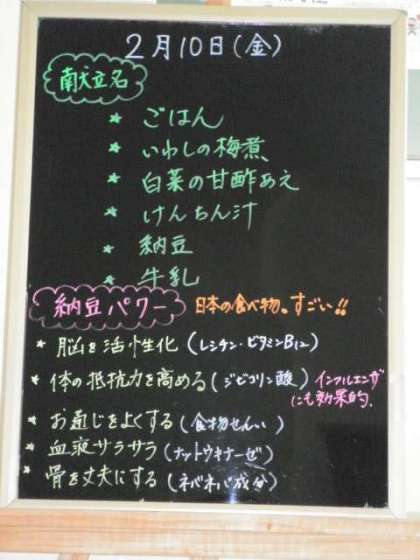 2月10日(金)
献立名
★ ごはん
★ いわしの梅煮
★ 白菜の甘酢あえ
★ けんちん汁
★ 納豆
★ 牛乳
納豆パワー 日本の食べ物。すごい!!
★ 脳を活性化(レシチン・ビタミンB12)
★ 体の抵抗力を高める(ジピコリン酸) インフルエンザにも効果的。
★ お通じをよくする(食物せんい)
★ 血液サラサラ(ナットウキナーゼ)
★ 骨を丈夫にする(ネバネバ成分)